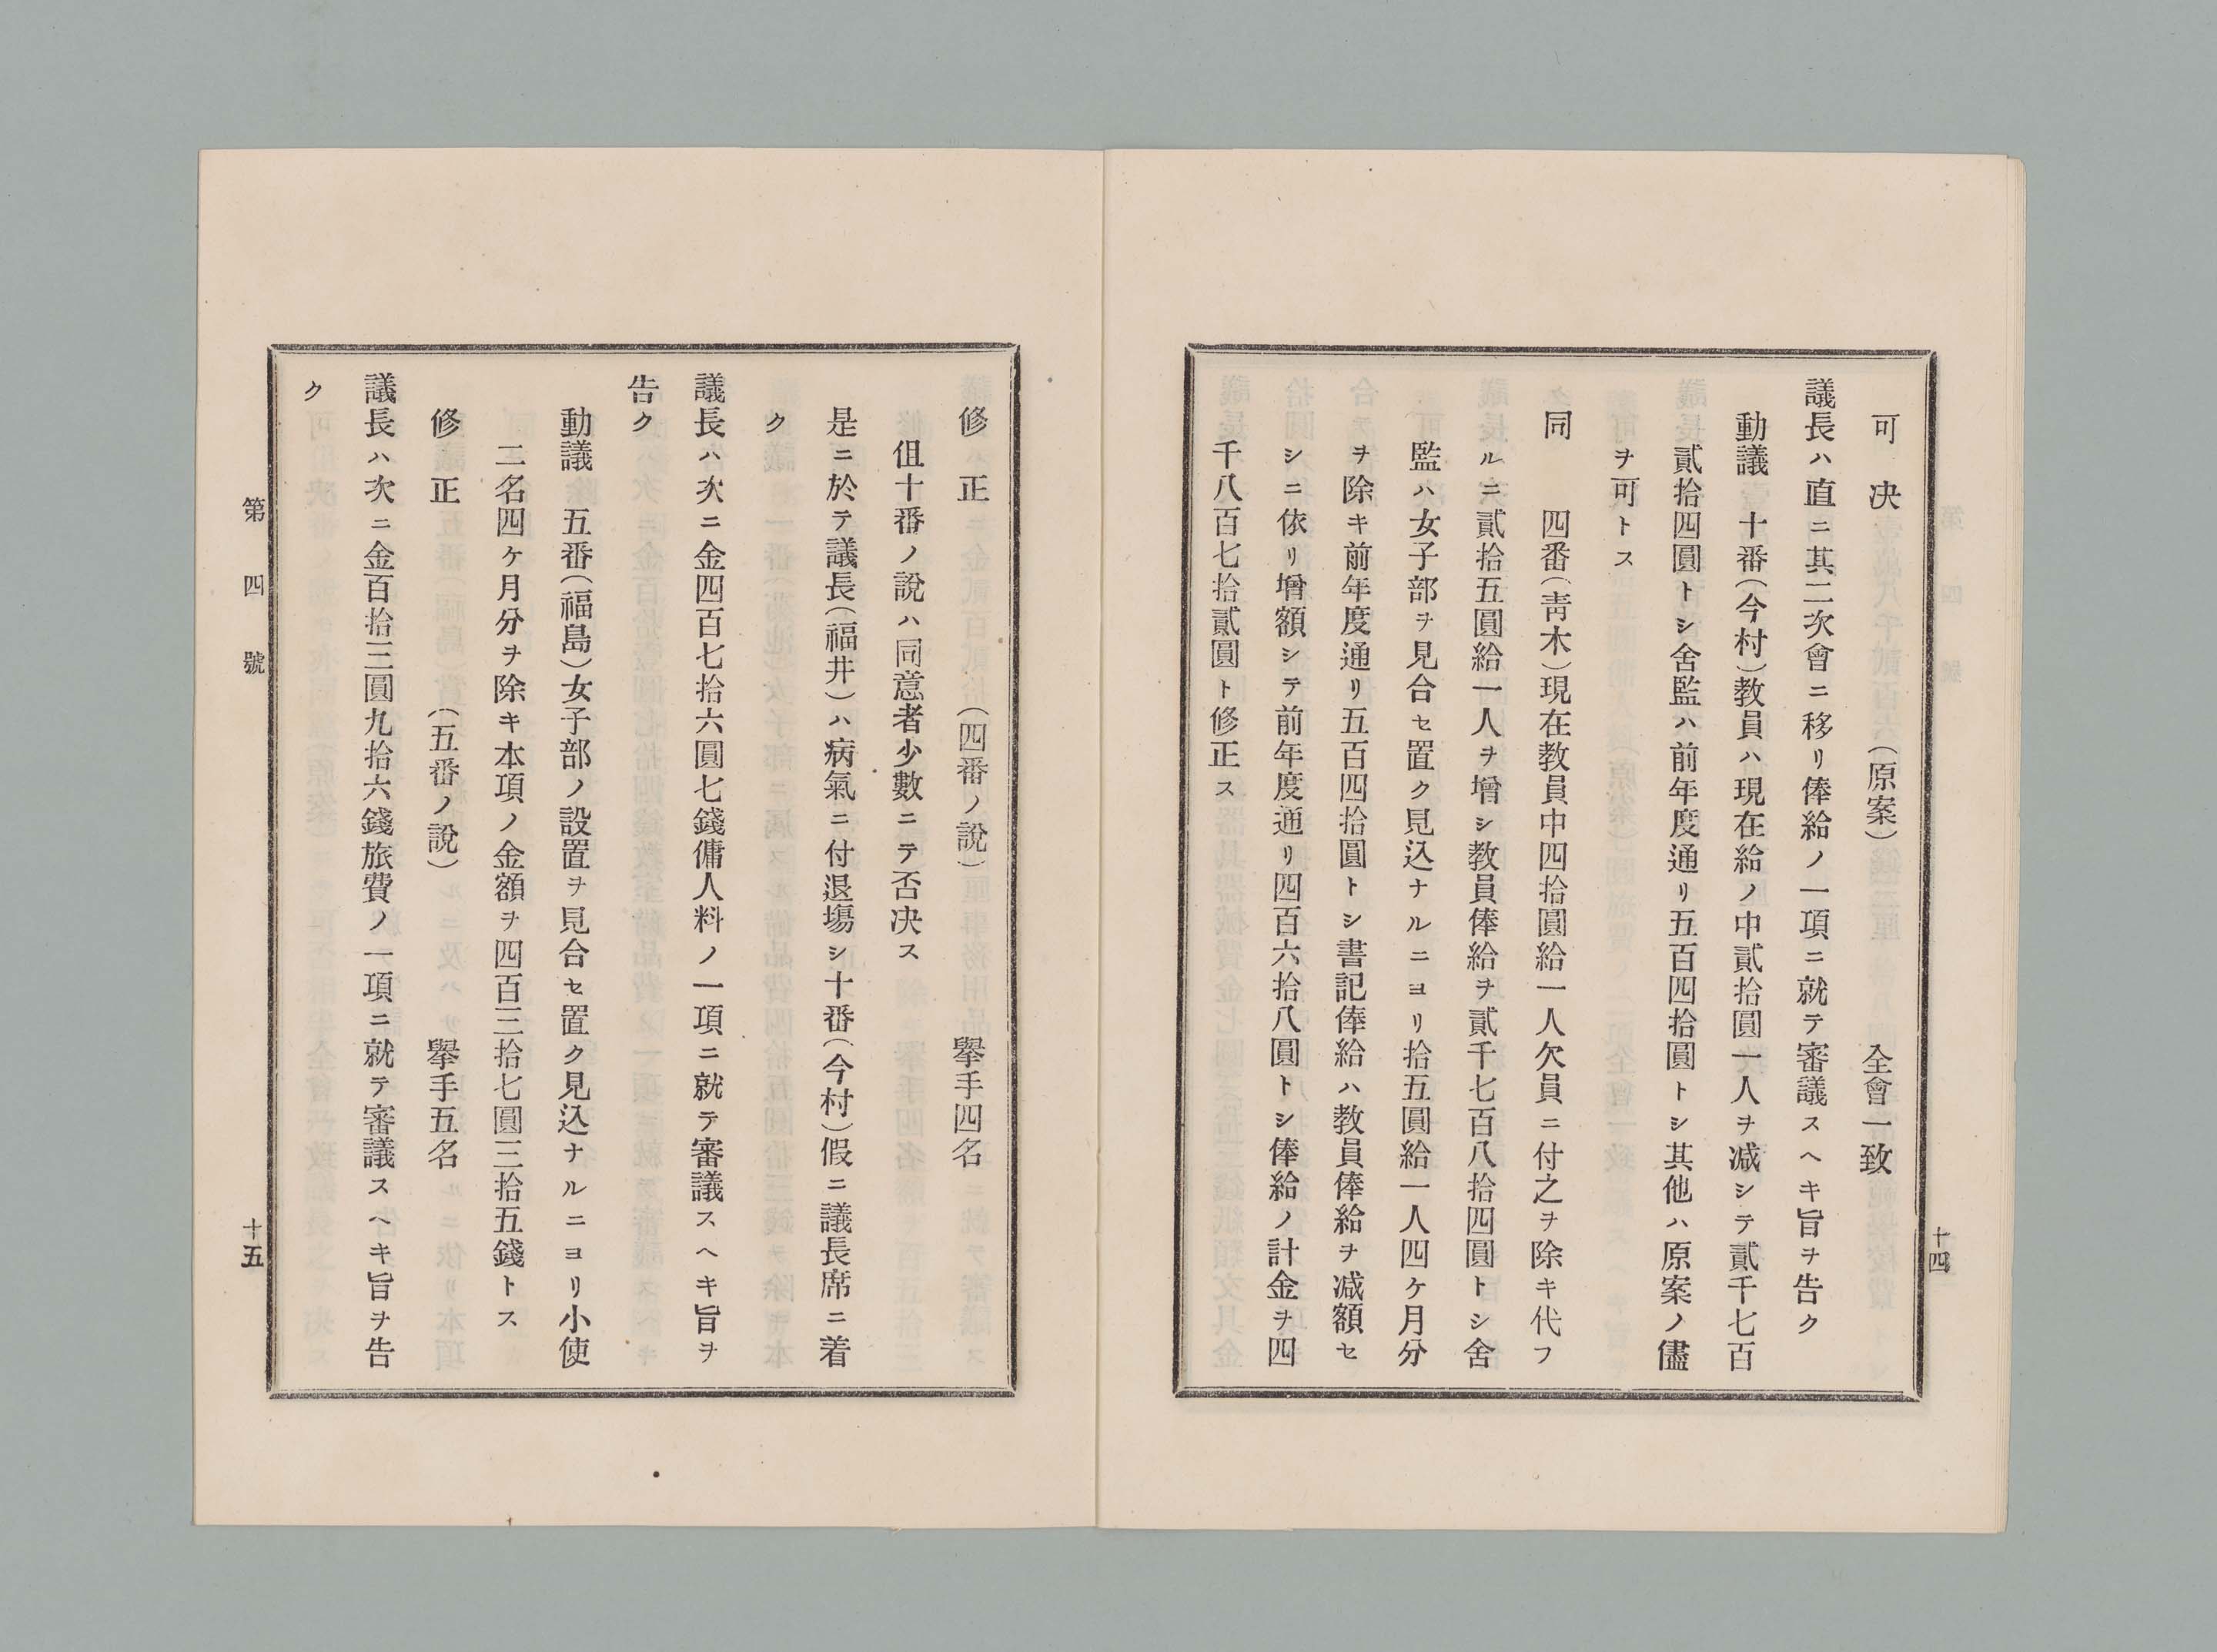 可決　　　　　　（原案）　　　　　　全會一致
議長ハ直ニ其二次會ニ移リ俸給ノ一項ニ就テ審議スヘキ旨ヲ告ク
動議　十番（今村）教員ハ現在給ノ中貳拾圓一人ヲ減シテ貳千七百
貳拾四圓トシ舍監ハ前年度通リ五百四拾圓トシ其他ハ原案ノ儘
ヲ可トス
同　　四番（靑木）現在教員中四拾圓給一人欠員ニ付之ヲ除キ代フ
ルニ貳拾五圓給一人ヲ增シ教員俸給ヲ貳千七百八拾四圓トシ舍
監ハ女子部ヲ見合セ置ク見込ナルニヨリ拾五圓給一人四ケ月分
ヲ除キ前年度通リ五百四拾圓トシ書記俸給ハ教員俸給ヲ减額セ
シニ依リ增額シテ前年度通リ四百六拾八圓トシ俸給ノ計金ヲ四
千八百七拾貳圓ト修正ス
十四
修正　　　　　　（四番ノ說）　　　　　　擧手四名
伹十番ノ說ハ同意者少數ニテ否决ス
是ニ於テ議長（福井）ハ病氣ニ付退塲シ十番（今村）假ニ議長席ニ着
ク
議長ハ次ニ金四百七拾六圓七錢傭人料ノ一項ニ就テ審議スヘキ旨ヲ
告ク
動議　五番（福島）女子部ノ設置ヲ見合セ置ク見込ナルニヨリ小使
二名四ケ月分ヲ除キ本項ノ金額ヲ四百三拾七圓三拾五錢トス
修正　　　　　　（五番ノ說）　　　　　　擧手五名
議長ハ次ニ金百拾三圓九拾六錢旅費ノ一項ニ就テ審議スヘキ旨ヲ告
ク
第四號
十五